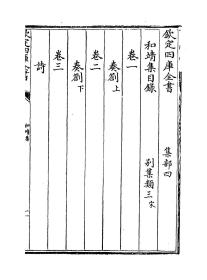 欽定四庫全書
集部四
和靖集目錄
別集類三宋
卷一
奏劄上
卷二
奏劄下
卷三
詩
欽定四庫全書
和靖集